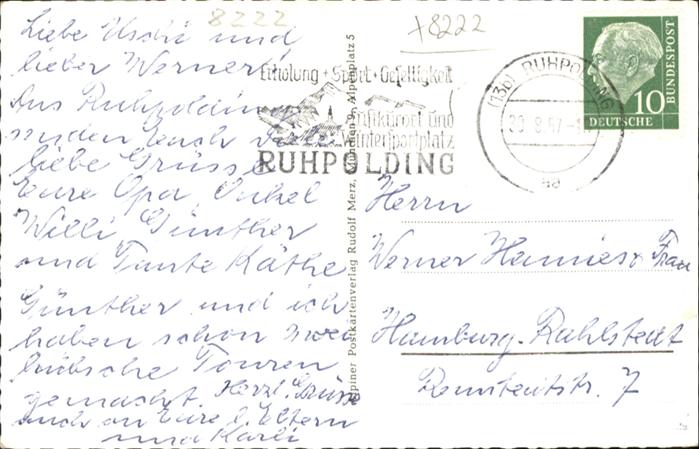 8222
+8222
Liebe Uschi und
lieber Werner!
Aus Ruhpolding
senden Euch viele
liebe Grüsse
Eure Opa, Onkel
Willi, Günther
und Tante Käthe
Günther und ich
haben schon zwei
hübsche Touren
gemacht. Herzl. Grüsse
auch an Eure l. Eltern
und Karli
Erholung + Sport + Geselligkeit
Luftkurort und
Wintersportplatz
RUHPOLDING
(13b) RUHPOLDING
8.57
ad
10
DEUTSCHE
BUNDESPOST
Alpiner Postkartenverlag Rudolf Merz, München 9, Alpenplatz 5
Herrn
Werner u. Frau
Hamburg-Rahlstedt
7